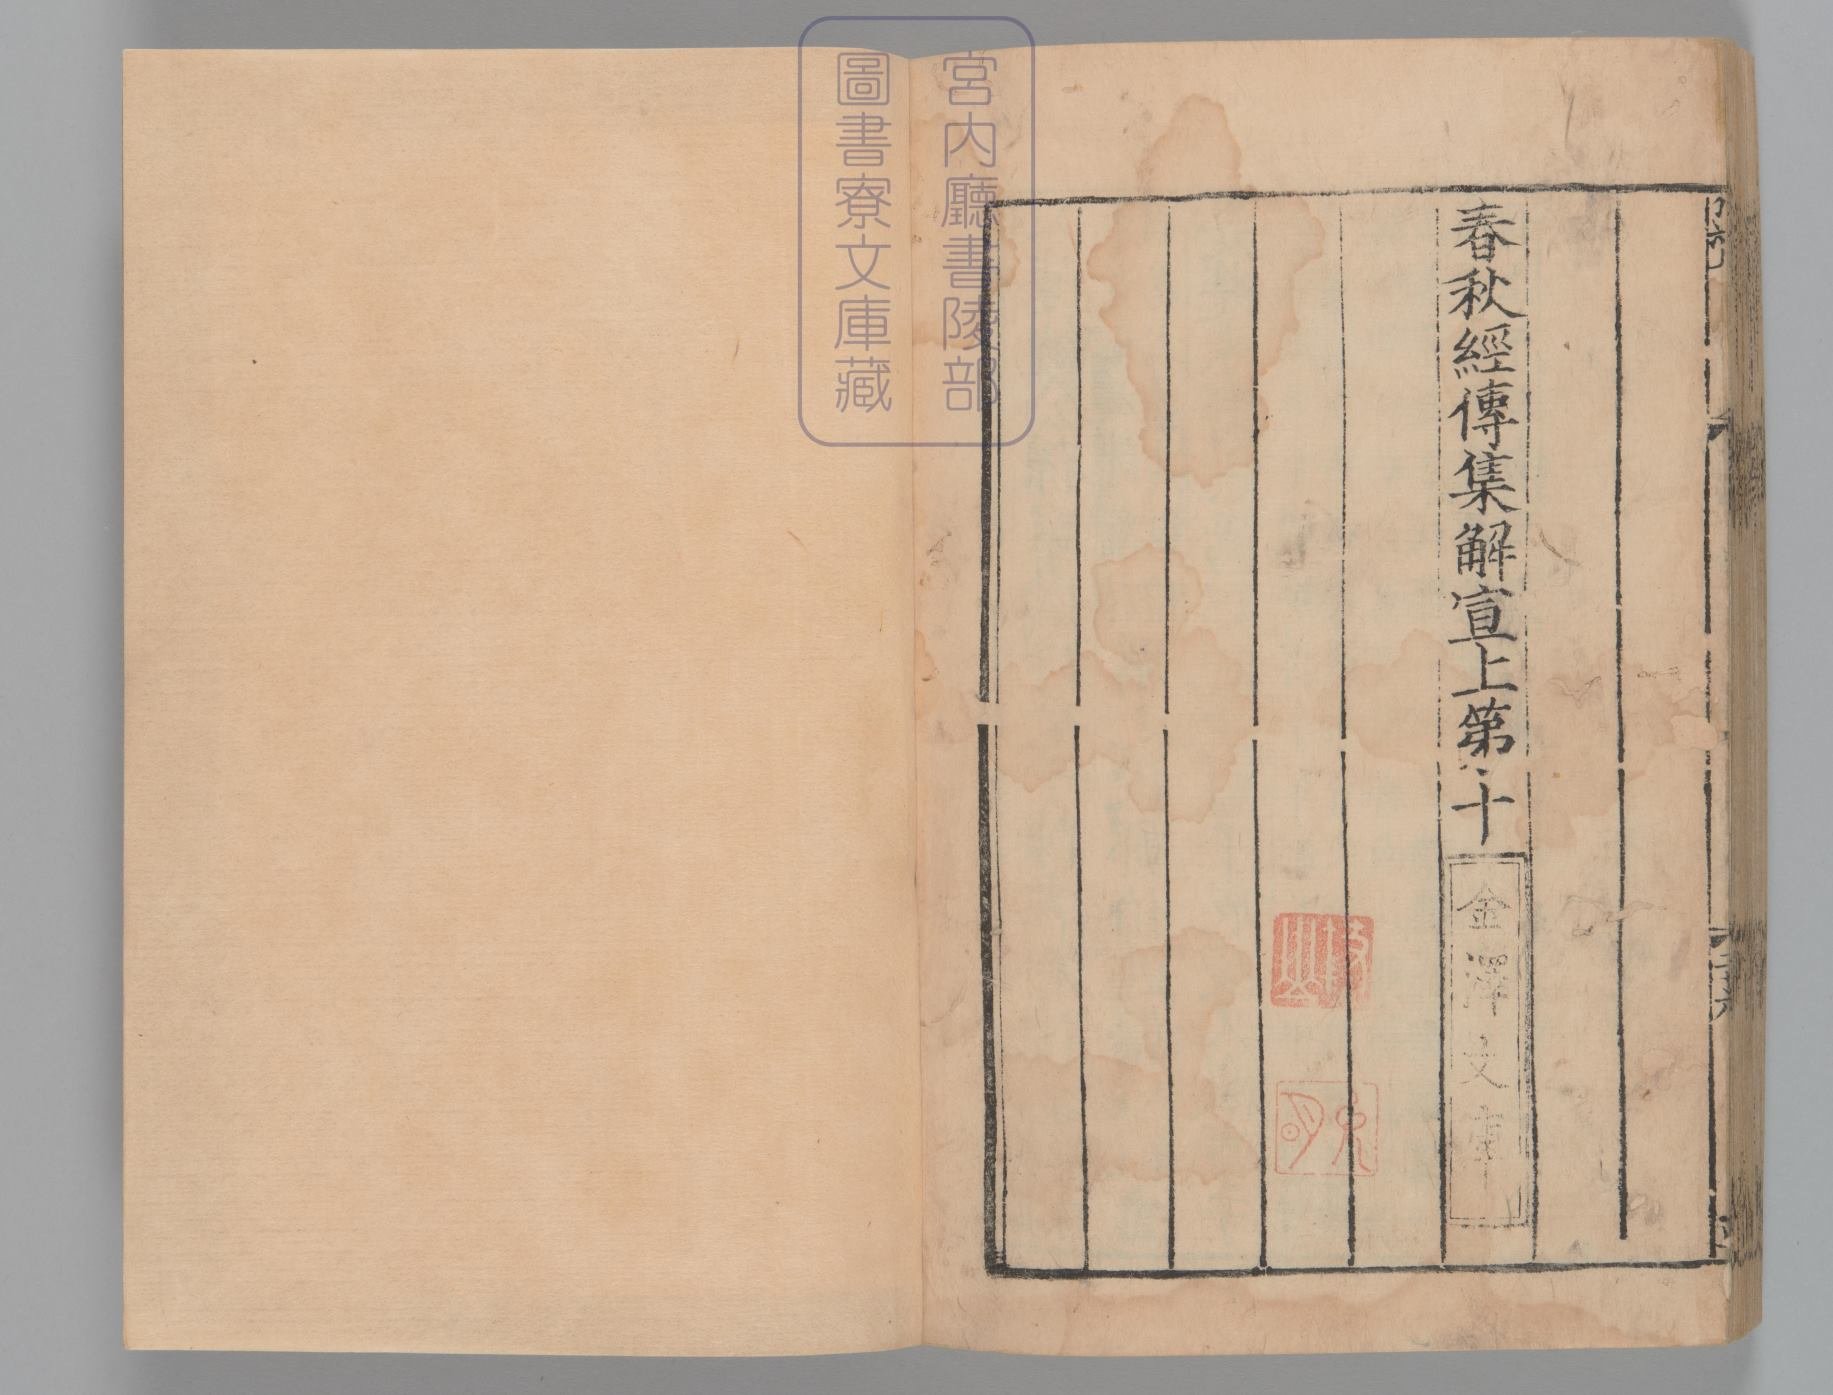 宮内廳書陵部
圖書寮文庫藏
春秋經傳集解宣上第十
金澤文庫